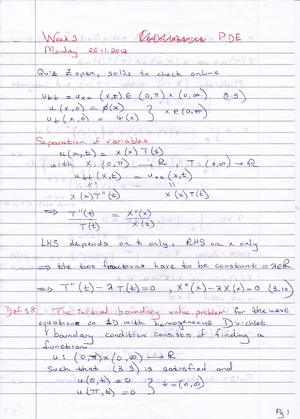 Week 9 PDE
Monday 26.11.2012
Quiz 7 open, sol's to check online
u_tt = u_xx (x,t) ∈ (0,π) × (0,∞) (3.9)
u(x,0) = φ(x)
u_t(x,0) = ψ(x) } x ∈ (0,π)
Separation of variables
u(x,t) = X(x) T(t)
with X: (0,π) → R, T: (0,∞) → R
u_tt(x,t) = u_xx(x,t)
X(x) T''(t) X''(x) T(t)
⇒ T''(t)/T(t) = X''(x)/X(x)
LHS depends on t only, RHS on x only
⇒ the two fractions have to be constant = λ∈R
⇒ T''(t) - λT(t) = 0, X''(x) - λX(x) = 0 (3.10)
Def 3.8 The initial boundary value problem for the wave
equation on 1D with homogeneous Dirichlet
boundary condition consists of finding a
function
u: (0,π) × (0,∞) → R
such that (3.9) is satisfied and
u(0,t) = 0
u(π,t) = 0 } t = (0,∞)